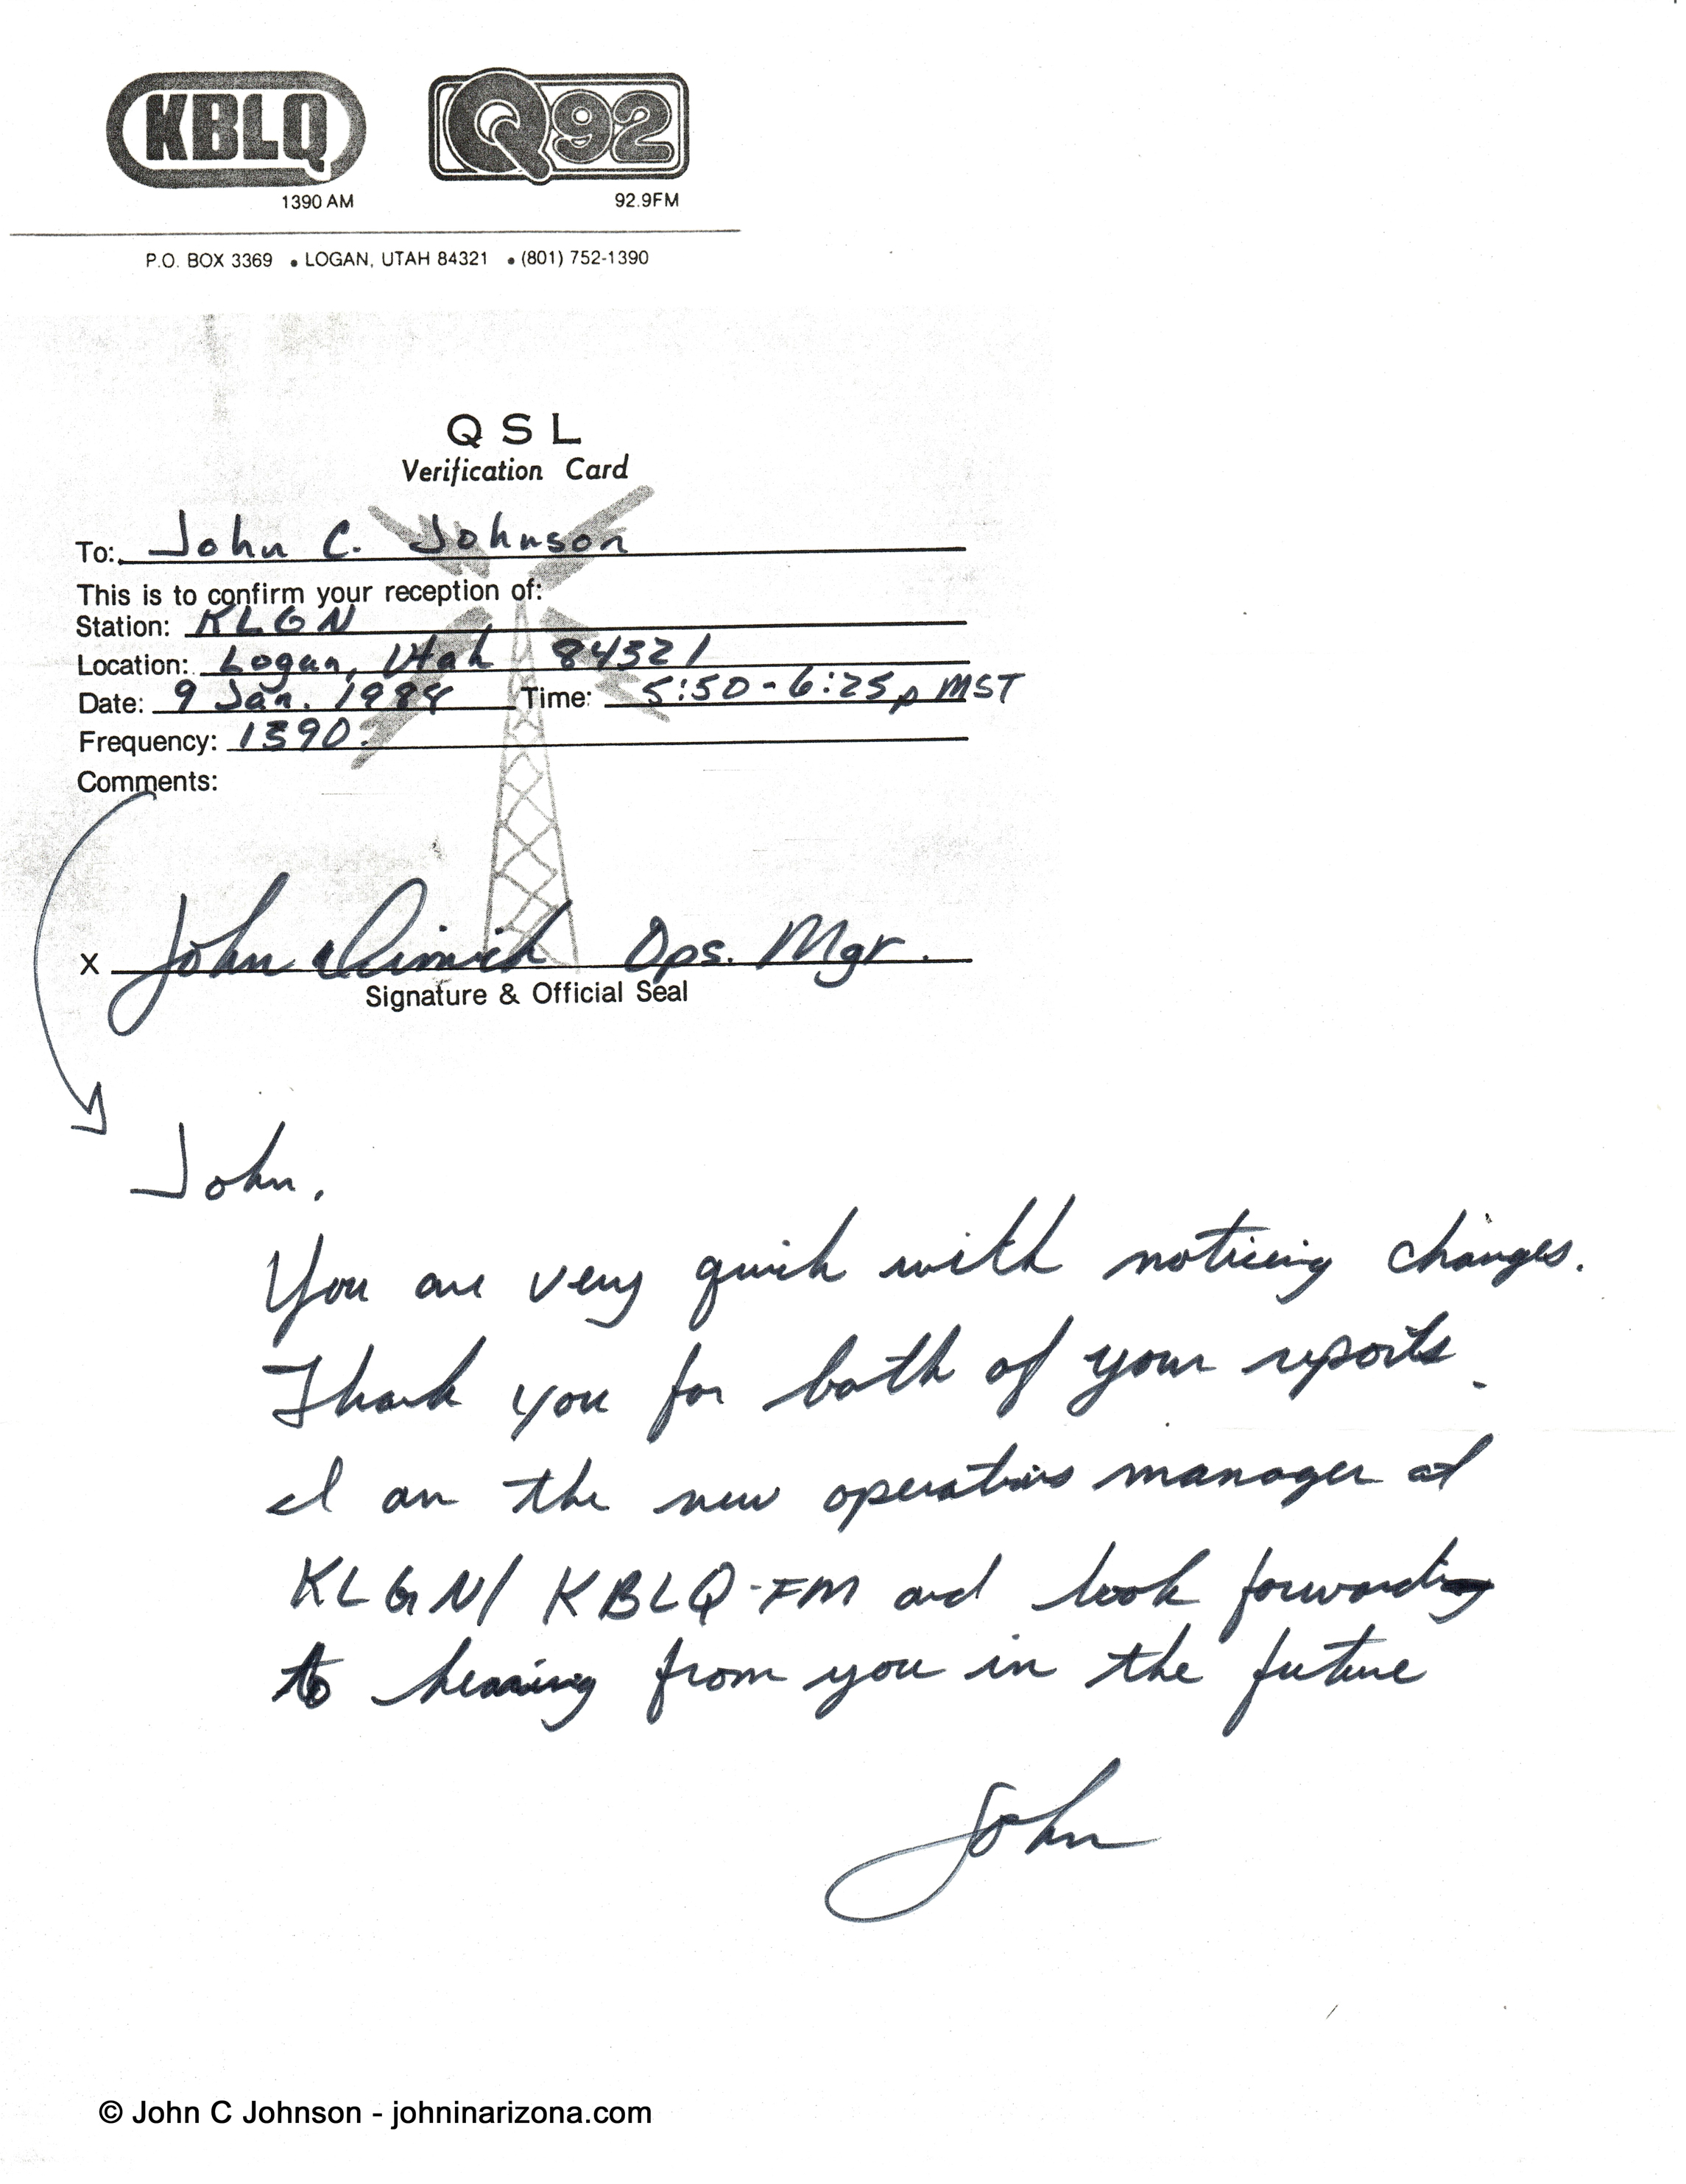 KBLQ Q92
1390 AM 92.9FM
P.O. BOX 3369 • LOGAN, UTAH 84321 • (801) 752-1390
QSL
Verification Card
To: John C. Johnson
This is to confirm your reception of:
Station: KLGN
Location: Logan, Utah 84321
Date: 9 Jan. 1984 Time: 5:50-6:25p MST
Frequency: 1390
Comments:
X John Ops. Mgr.
Signature & Official Seal
John,
You are very quick with noticing changes.
Thank you for both of your reports.
I am the new operations manager at
KLGN/KBLQ-FM and look forward
to hearing from you in the future
John
© John C Johnson - johninarizona.com